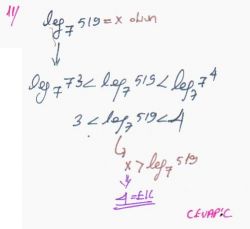 11/
log₇ 519 = x olsun
log₇ 7³ < log₇ 519 < log₇ 7⁴
3 < log₇ 519 < 4
x > log₇ 519
4 = EK
CEVAP: C